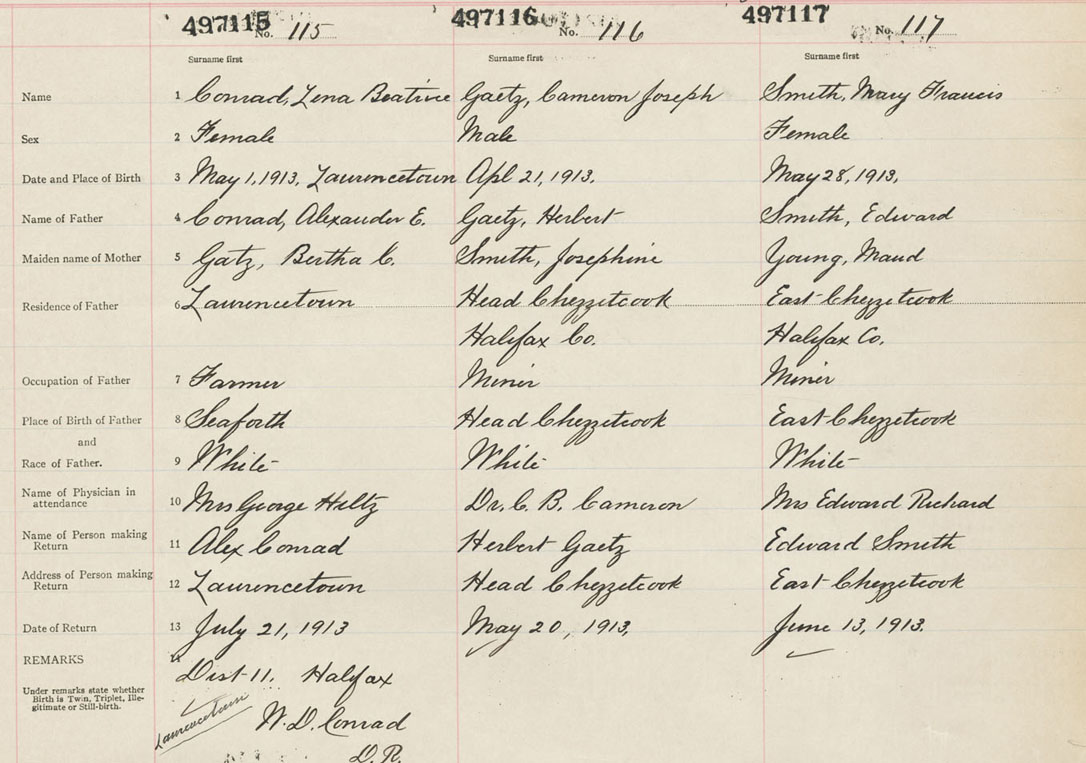 497115 No. 115 497116 No. 116 497117 No. 117
Surname first Surname first Surname first
Name 1 Conrad, Lena Beatrice Gaetz, Cameron Joseph Smith, Mary Francis
Sex 2 Female Male Female
Date and Place of Birth 3 May 1, 1913, Laurencetown Apl 21, 1913. May 28, 1913.
Name of Father 4 Conrad, Alexander E. Gaetz, Herbert Smith, Edward
Maiden name of Mother 5 Gatz, Bertha C. Smith, Josephine Young, Maud
Residence of Father 6 Laurencetown Head Chezzetcook East Chezzetcook
Halifax Co. Halifax Co.
Occupation of Father 7 Farmer Miner Miner
Place of Birth of Father 8 Seaforth Head Chezzetcook East Chezzetcook
and
Race of Father. 9 White White White
Name of Physician in
attendance 10 Mrs George Hiltz Dr. C. B. Cameron Mrs Edward Richard
Name of Person making
Return 11 Alex Conrad Herbert Gaetz Edward Smith
Address of Person making
Return 12 Laurencetown Head Chezzetcook East Chezzetcook
Date of Return 13 July 21, 1913 May 20, 1913. June 13, 1913.
REMARKS 14
Dist 11. Halifax
Under remarks state whether
Birth is Twin, Triplet, Ille-
gitimate or Still-birth.
Laurencetown
W. D. Conrad
D. R.